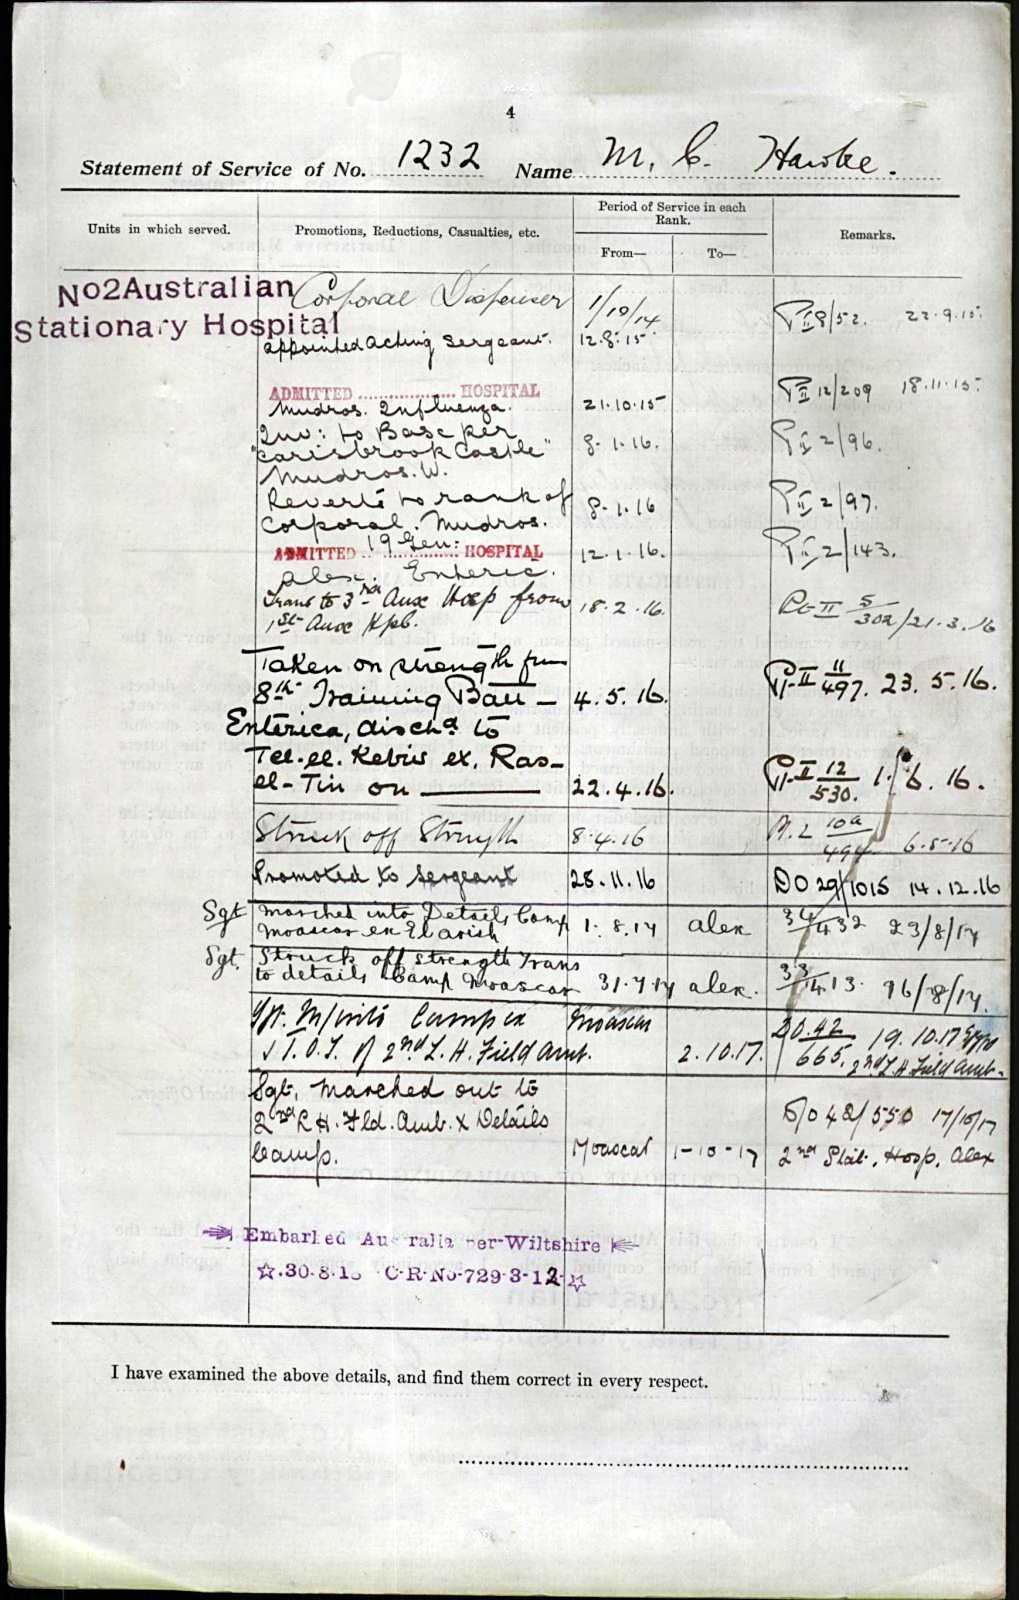 4
Statement of Service of No. 1232 Name M. C. Hawke.
Units in which served. Promotions, Reductions, Casualties, etc. Period of Service in each Rank. From— To— Remarks.
No2Australian Stationary Hospital
Corporal Dispenser 1/10/14 Pt II 8/52. 22.9.15.
appointed acting Sergeant. 12.8.15
ADMITTED HOSPITAL
Mudros. Influenza. 21.10.15 Pt II 12/209 18.11.15.
Inv: to Base per
"Carisbrook Castle" 8.1.16. Pt II 2/96.
Mudros. W.
Reverts to rank of
Corporal. Mudros. 8.1.16 Pt II 2/97.
ADMITTED 19 Gen: HOSPITAL 12.1.16. Pt II 2/143.
Alex. Enteric.
Trans to 3rd Aux Hosp from
1st Aux Hpl. 18.2.16. Pt II 5/302/21.3.16
Taken on strength fm
8th Training Batt — 4.5.16. Pt-II 11/497. 23.5.16.
Enterica, dischd to
Tel-el-Kebir ex. Ras-
el-Tin on 22.4.16. Pt-II 12/530. 1.6.16.
Struck off Strength 8.4.16 10a/494 6.5.16
Promoted to Sergeant 28.11.16 DO 29/1015 14.12.16
Sgt Marched into Details Camp
Moascar ex El Arish 1.8.17 Alex 34/432 23/8/17
Sgt. Struck off strength Trans
to details Camp Moascar 31.7.17 Alex. 33/413. 16/8/17.
M/into Camp ex Moascar DO.42/665. 19.10.17 Egypt
& T.O.S. of 2nd L.H. Field Amb. 2.10.17. 2nd L.H Field Amb.
Sgt, Marched out to
2nd L H. Fld. Amb. x Details D/O 42/550 17/10/17
Camp. Moascar 1-10-17 2nd Stat. Hosp. Alex
Embarked Australia per-Wiltshire
30.8.18 C-R-No-729-3-12
I have examined the above details, and find them correct in every respect.